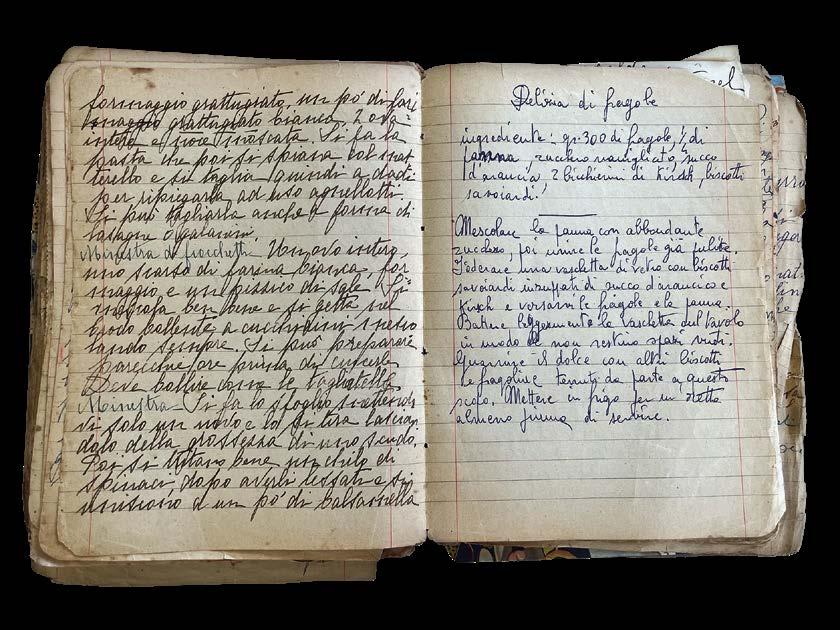 formaggio grattugiato, un po' di fari
maggio grattugiato bianca, 2 ova
intere e noce moscata. Si fa la
pasta che poi si spiana col mat
terello e si taglia quindi a dadi
per ripiegarla ad uso agnellotti.
Si può tagliarla anche a forma di
lasagne o
Minestra di fiocchetti - Un ovo intero,
uno scarso di farina bianca, for
maggio e un pizzico di sale. Si
ben bene e si getta nel
brodo bollente a mesco
lando sempre. Si può preparare
parecchie ore prima di cuocerla
Deve bollire come le tagliatelle
Minestra - Si fa lo sfoglio mettendo
vi solo un uovo e lo si tira lascian
dolo della grossezza di uno scudo.
Poi si tritano bene un chilo di
spinaci, dopo averli lessati e si
uniscono a un po' di balsamella
Delizia di fragole
ingrediente: gr. 300 di fragole, ½ di
panna, zucchero vanigliato, succo
d'arancia 2 bicchierini di Kirsch, biscotti
savoiardi!
Mescolare la panna con abbondante
zucchero, poi unire le fragole già pulite.
Foderare una vaschetta di vetro con biscotti
savoiardi inzuppati di succo d'arancio e
Kirsch e versarvi le fragole e la panna.
Battere leggermente la vaschetta sul tavolo
in modo che non restino spazi vuoti.
Guarnire il dolce con altri biscotti
le fragoline tenute da parte a questo
scopo. Mettere in frigo per un
almeno prima di servire.